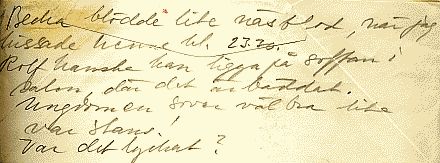 Bedia blödde lite näsblod, när jag
väckade henne kl. 23.20.
Rolf kanske kan ligga på soffan i
salon, där det är bäddat.
Ungdomen sover väl bra lite
var stans!
Var det lyckat?